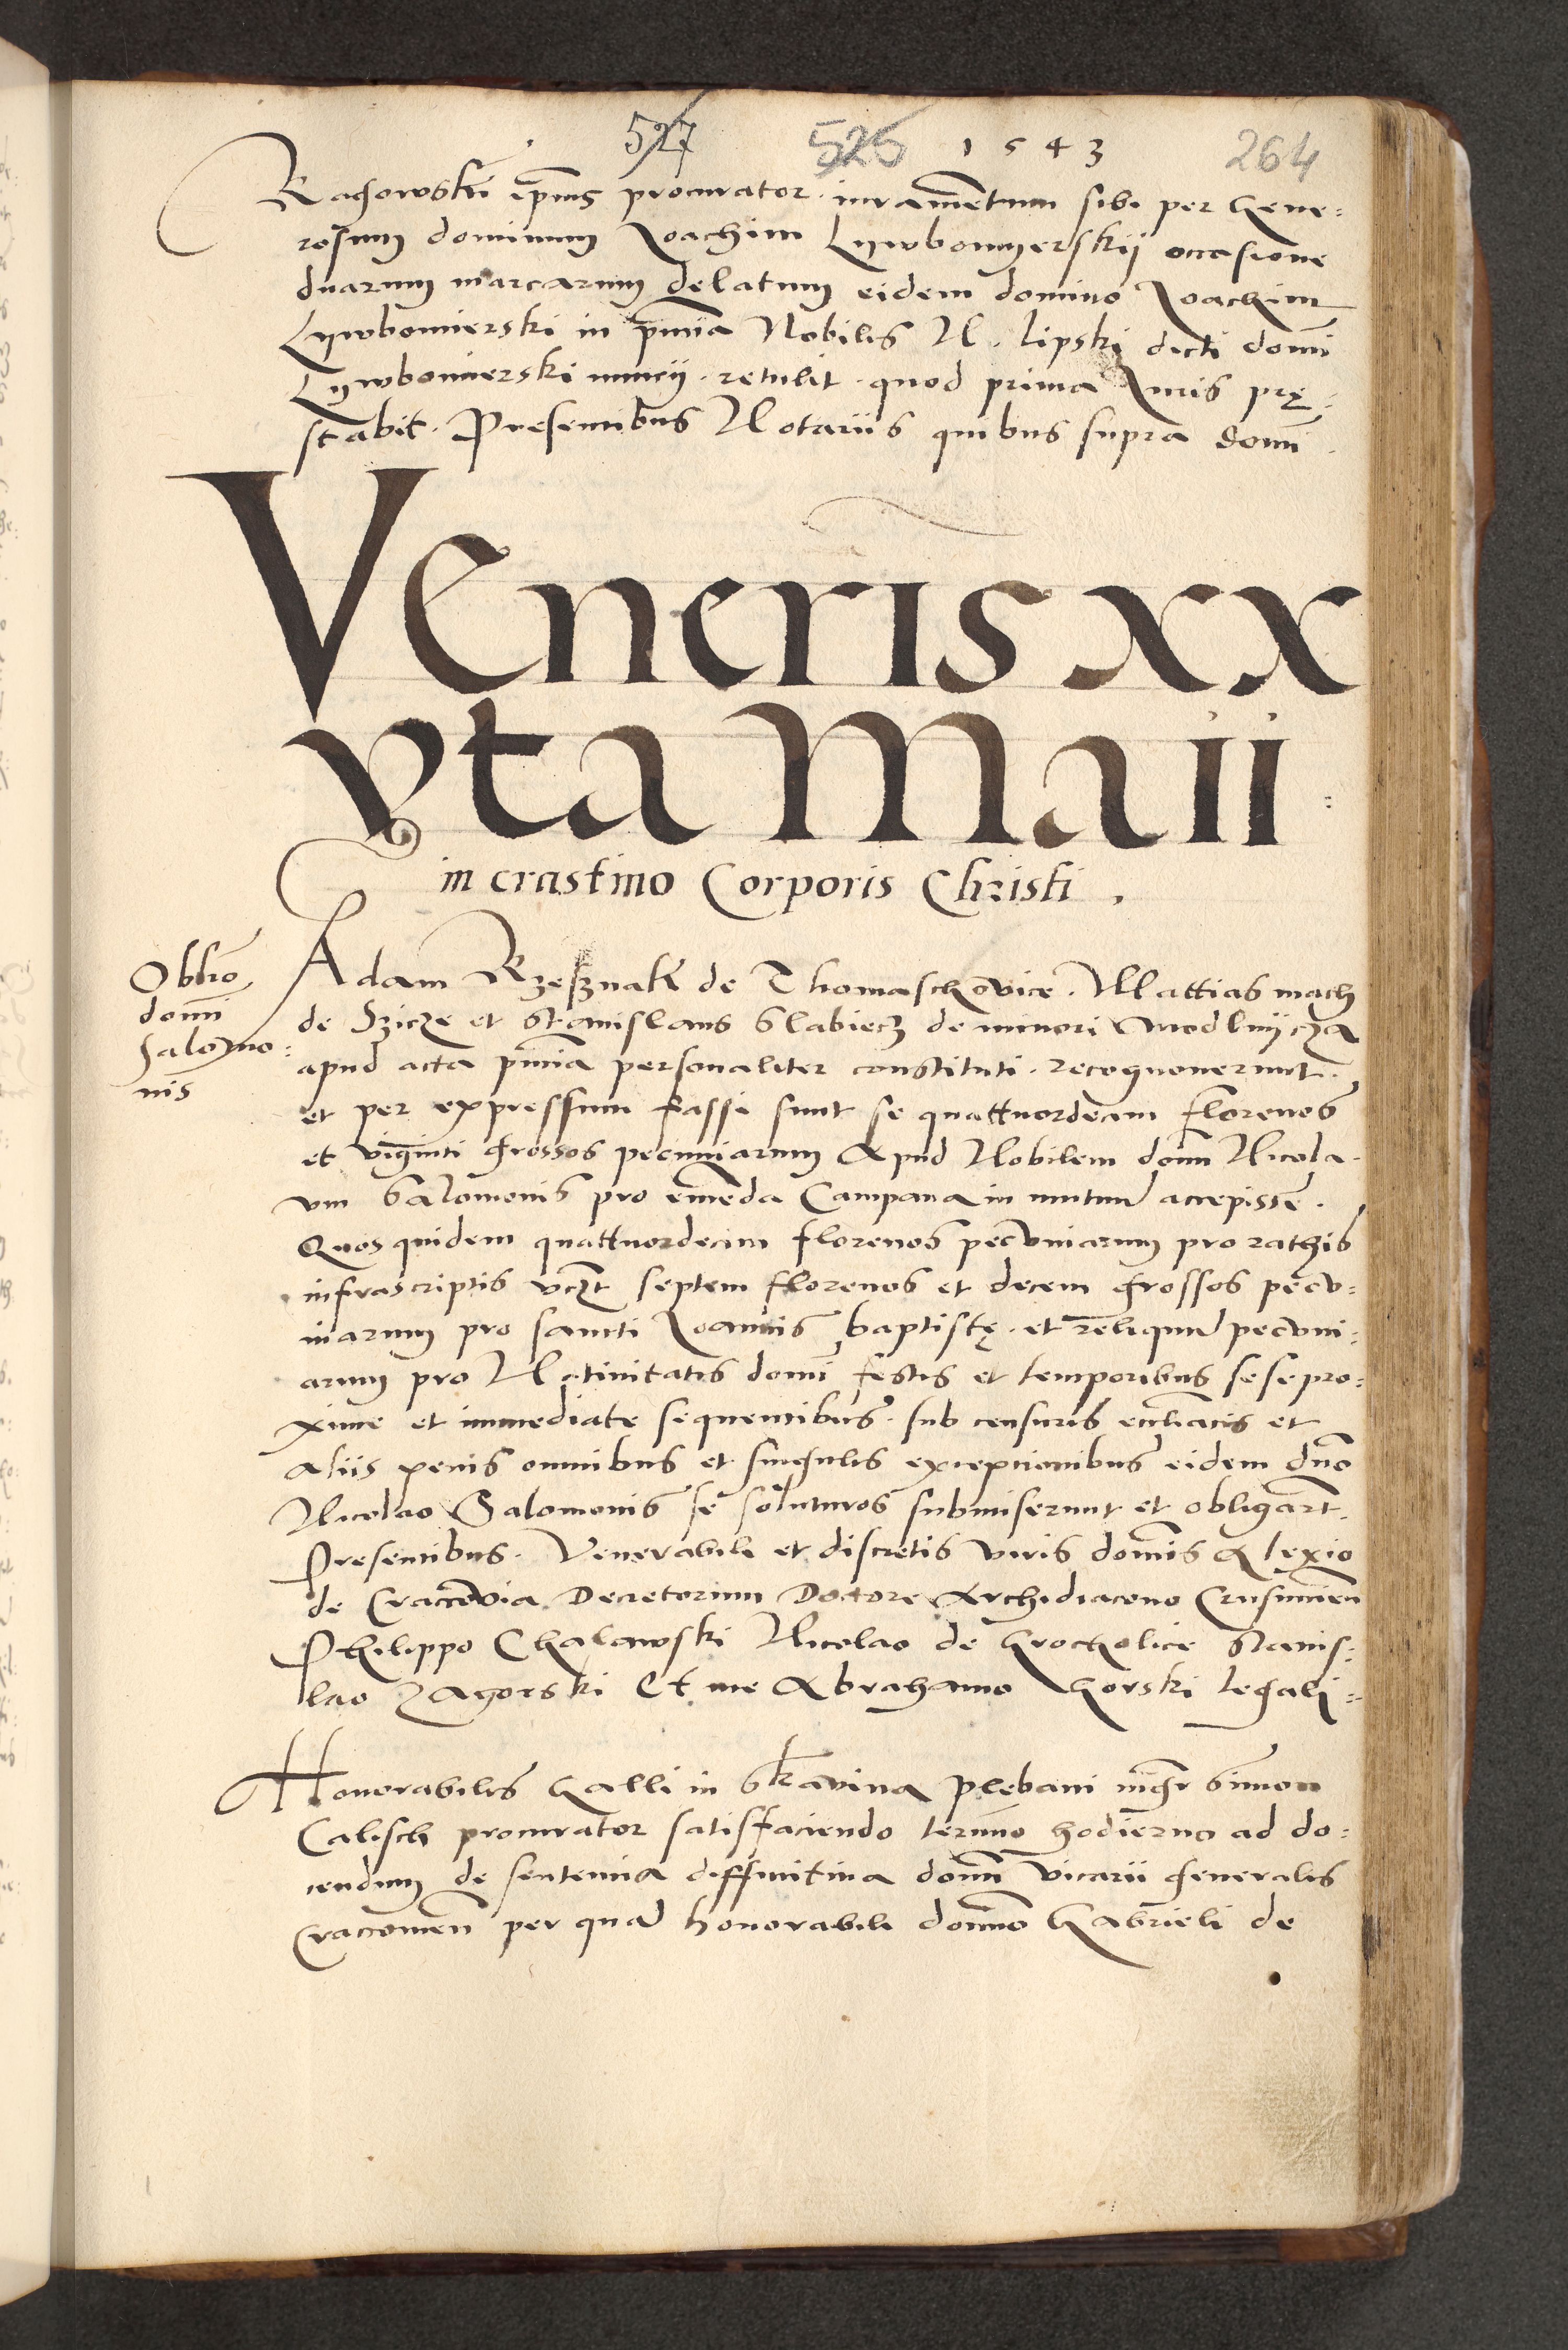 527 525 1543 264
Ragowski ip̄ius procurator. iuramētum sibi per Gene=
rosum dominum Joachim Lywbomyerskij occasione
duarum marcarum delatum eidem domino Joachim
Lywbomierski in p̄n̄tia Nobilis N. Lipski dicti domī
Lywbomierski nuncij. retulit. quod prima Juris prę=
stabit. Presentibus Notariis quibus supra domī.
Veneris xx
vta Maii:
in crastino Corporis Christi.
Obl̄io
domī
Salomo=
nis
Adam Rzesznak de Thomaschovice. Mattias mach
de Szicze et Stanislaus Slabiecz de minori Modlnycza
apud acta p̄n̄tia personaliter constituti. recognoverunt.
et per expressum fassi sunt se quattuordecim florenos
et viginti grossos pecuniarum Apud Nobilem domī Nicola-
um Salomonis pro emēda Campana in mutuū accepisse.
Quos quidem quattuordecim florenos pecuniarum pro rathis
infrascriptis vcz̄t septem florenos et decem grossos pecu=
niarum pro sancti Joannis baptistę. et reliquū pecuni=
arum pro Nativitatis domī festis et temporibus sese pro=
xime et immediate sequentibus. sub censuris eccl̄iacis et
aliis penis omnibus et singulis exceptionibus eidem dn̄o
Nicolao Salomonis se soluturos submiserunt et obligar̄t.
Presentibus. Venerabili et discretis viris domīs Alexio
de Cracovia Decretorum Doctore Archidiacono Crusvicień
Philippo Chalawski Nicolao de Grocholice Stanis=
lao Zagorski Et me Abrahamo Gorski legali=
Honorabilis Galli in Skavina Plebani mḡr Simon
Calisch procurator satisfaciendo termino hodierno ad do=
cendum de sententia diffinitiva domī vicarii generalis
Cracovień per quā honorabili domīo Gabrieli de